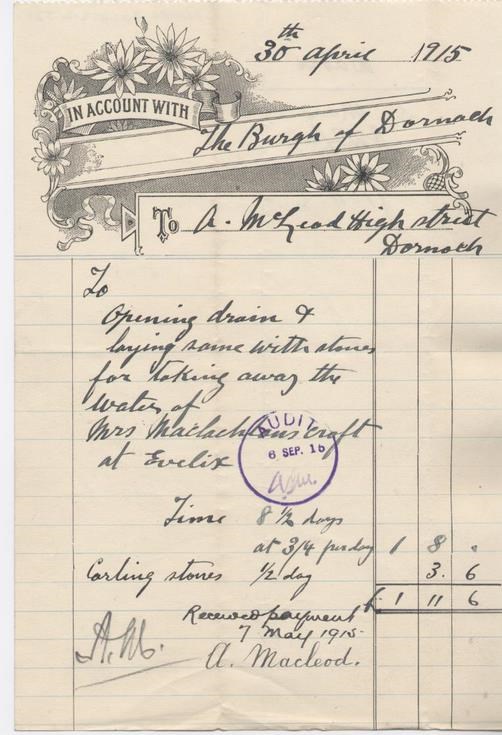 30th April 1915
IN ACCOUNT WITH
The Burgh of Dornoch
To A. McLeod High street
Dornoch
To
Opening drain &
laying same with stones
for taking away the
water of
Mrs Maclachlans croft
at Evelix
AUDIT
6 SEP. 15
Time 8 1/2 days
at 3/4 per day 1 8 .
Carling stones 1/2 day 3. 6
£ 1 11 6
Received payment
7 May 1915
A. M.
A. Macleod.